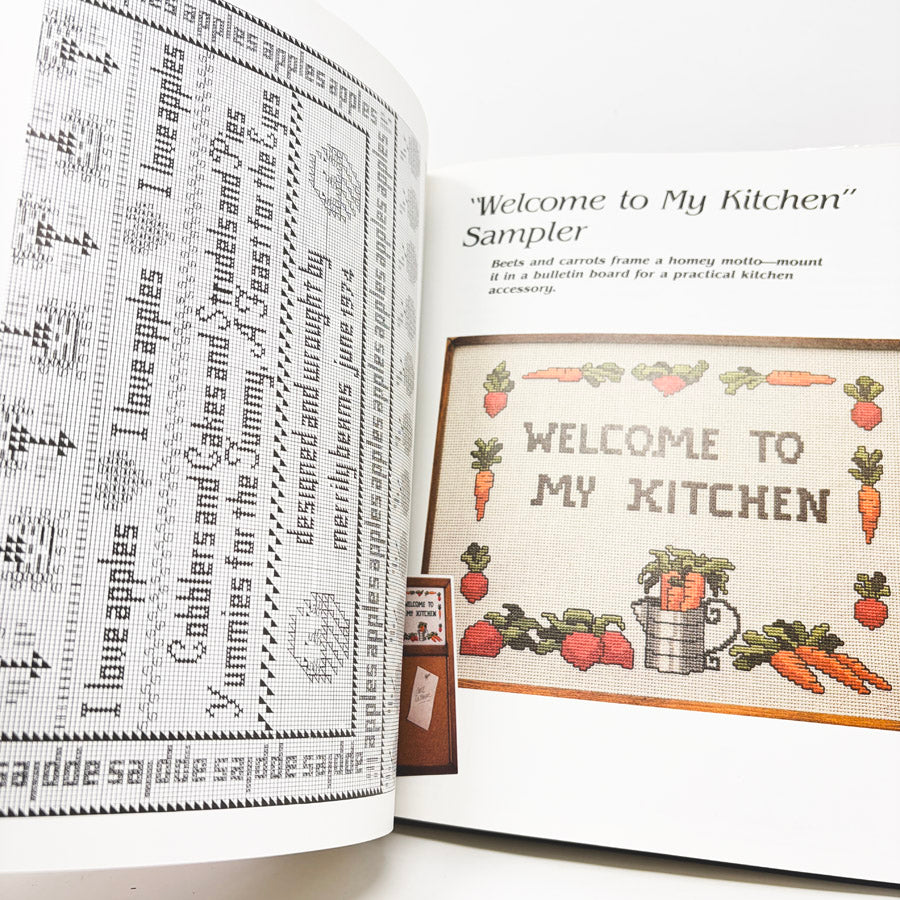 apples apples apples apples
I love apples I love apples I love apples
Cobblers and Cakes and Strudels and Pies
Yummies for the Tummy, A Feast for the Eyes
designed and wrought by
merrily bems june 1974
apples apples apples apples apples apples apples
apples apples apples apples apples
"Welcome to My Kitchen"
Sampler
Beets and carrots frame a homey motto—mount
it in a bulletin board for a practical kitchen
accessory.
WELCOME TO
MY KITCHEN
WELCOME TO
MY KITCHEN